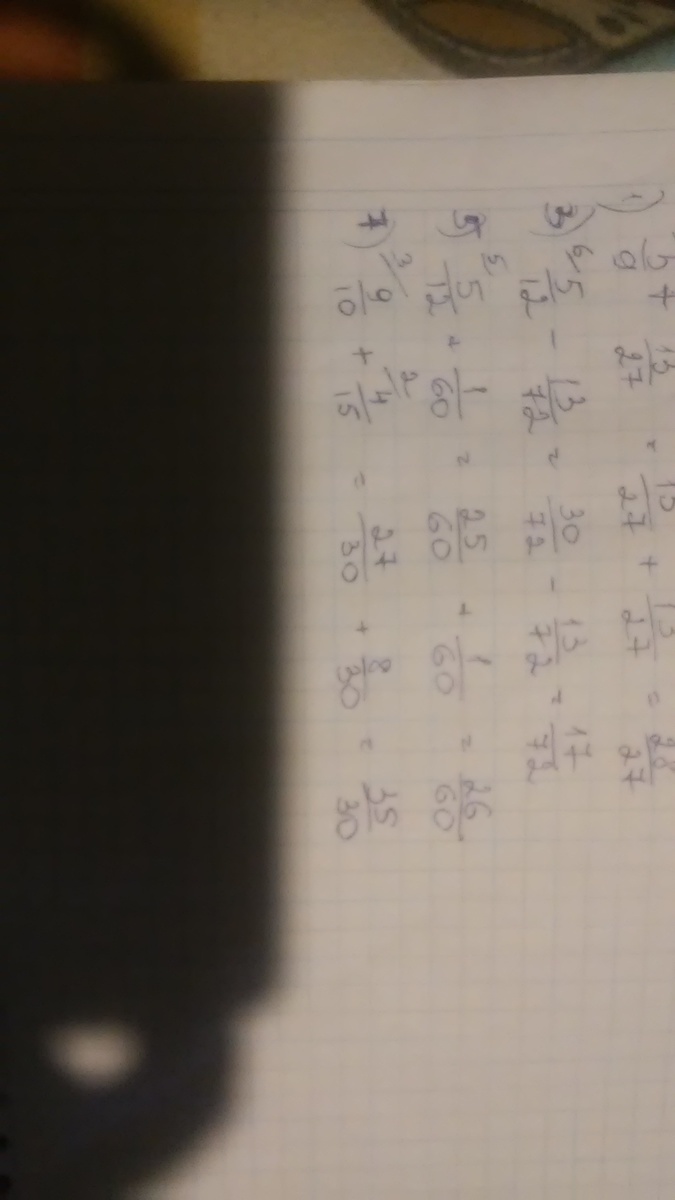 1) 5/9 + 13/27 = 15/27 + 13/27 = 28/27
3) 6/ 5/12 - 13/72 = 30/72 - 13/72 = 17/72
5) 5/ 5/12 + 1/60 = 25/60 + 1/60 = 26/60
7) 3/ 9/10 + 2/ 4/15 = 27/30 + 8/30 = 35/30